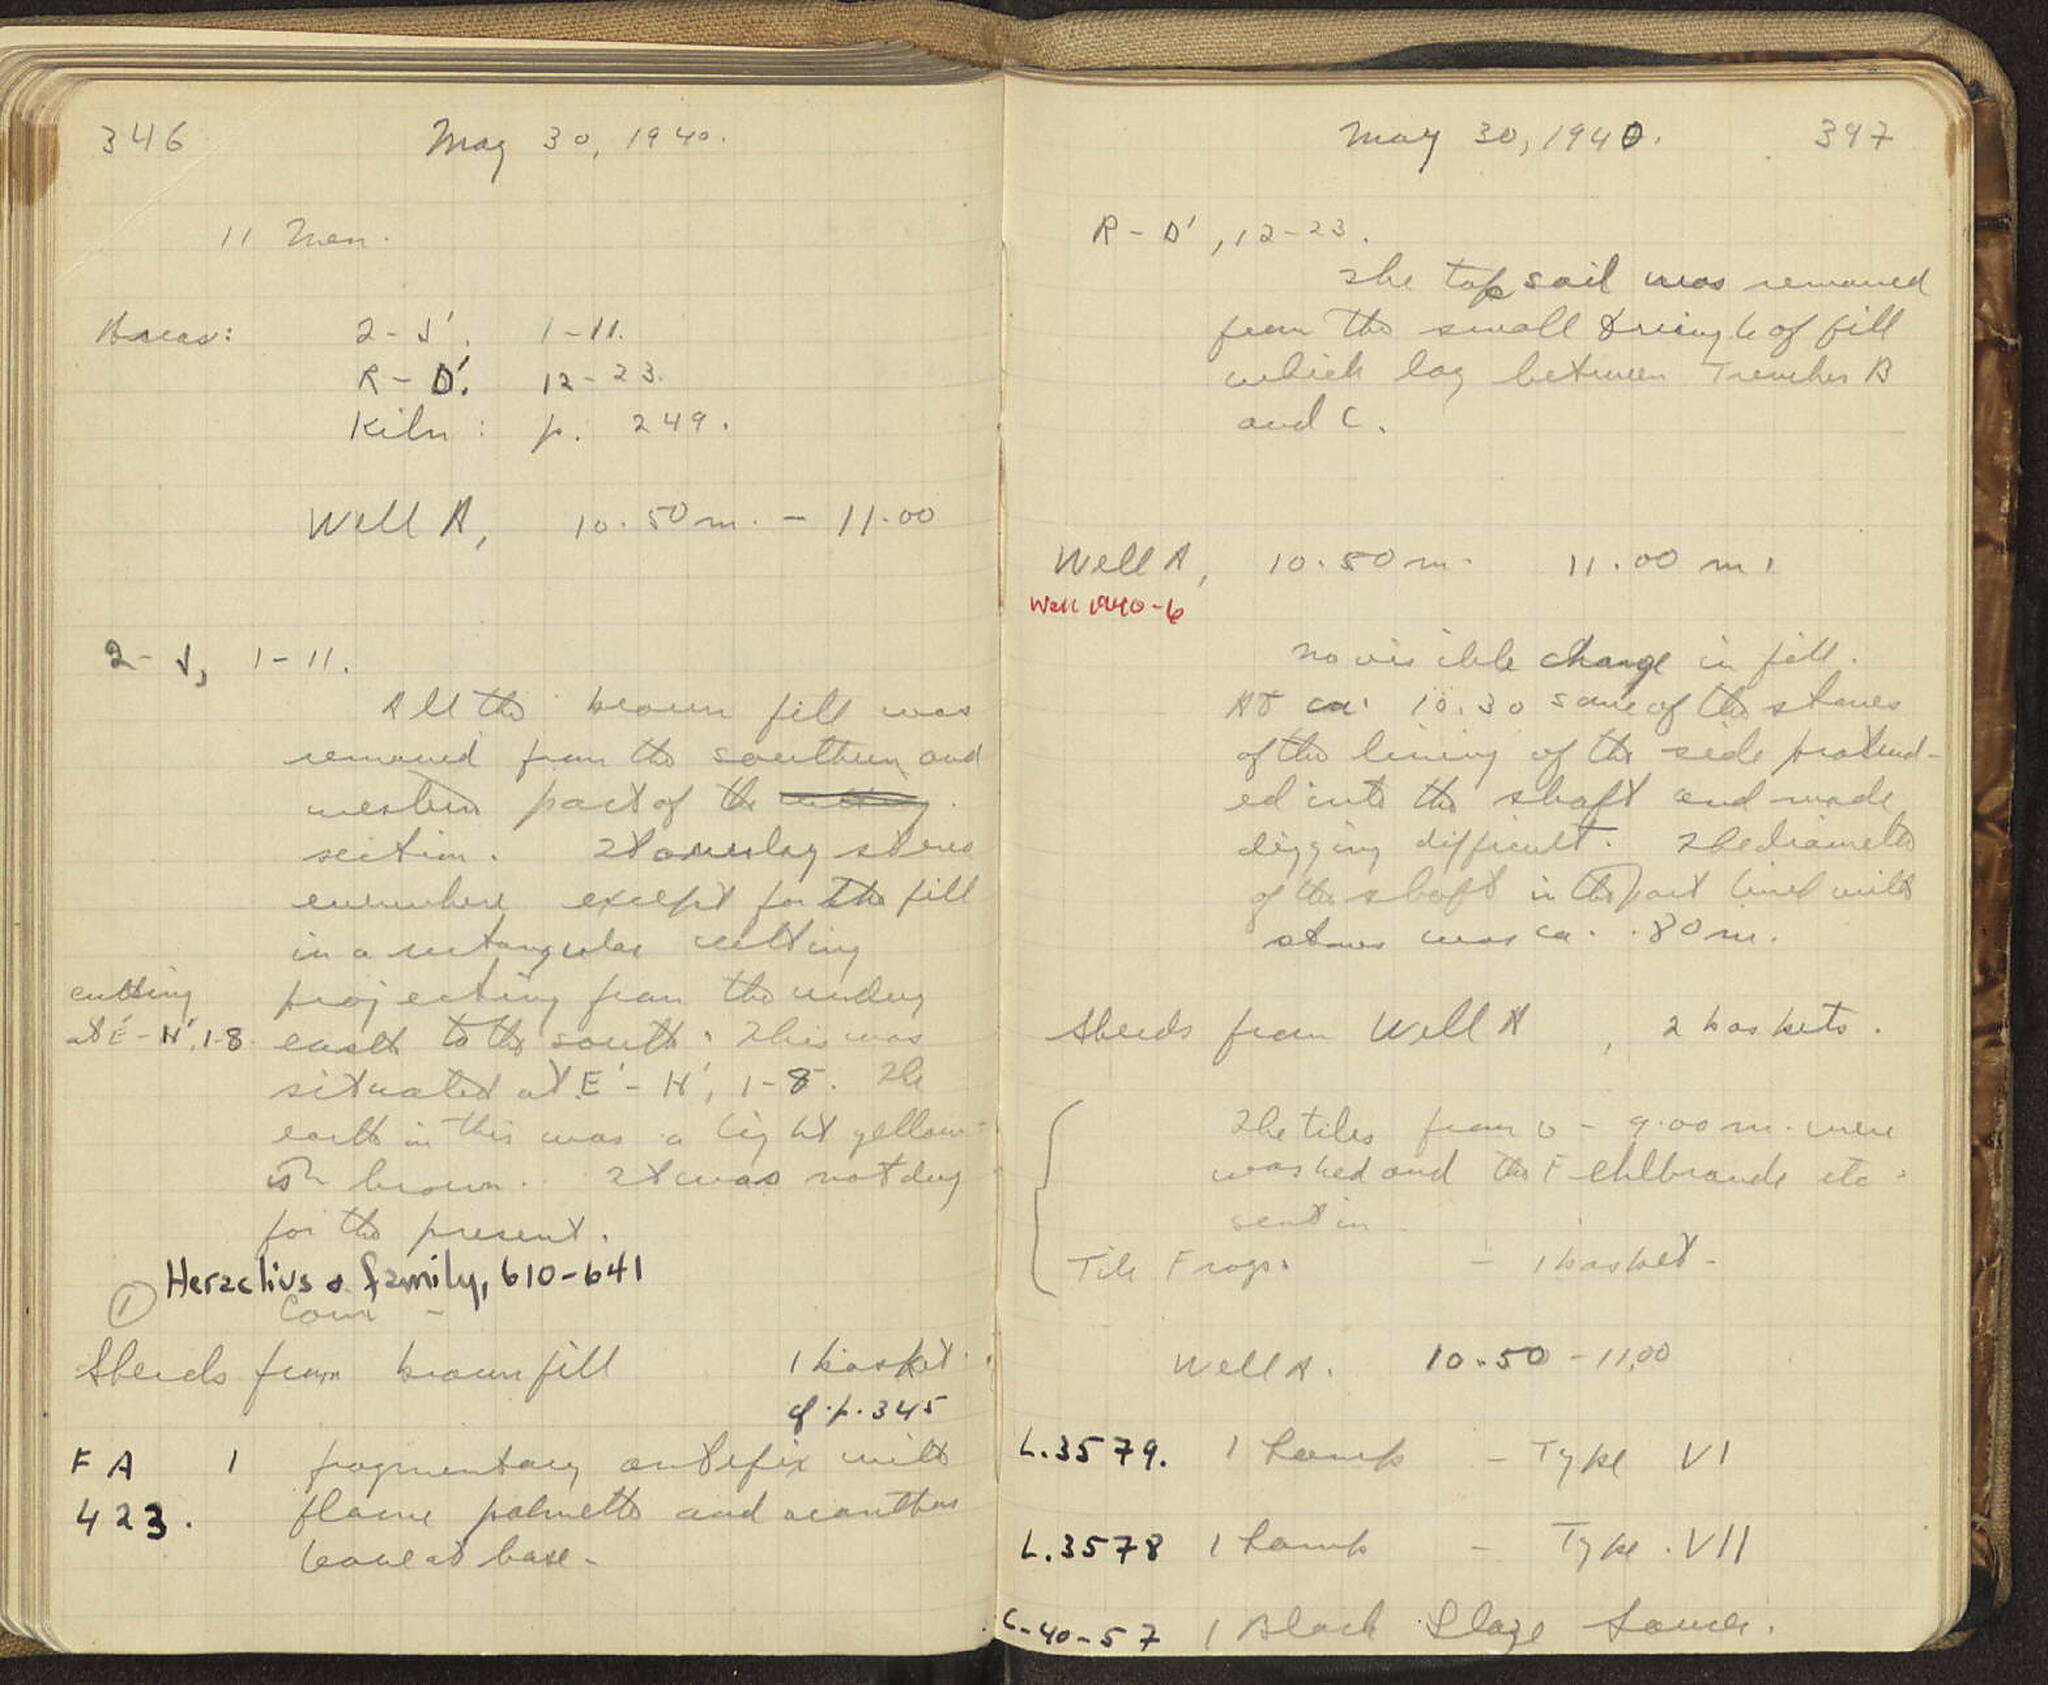 346
May 30, 1940.
11 Men.
Areas: 2 - J'. 1-11.
R - D'. 12-23.
Kiln: p. 249.
Well A, 10.50 m. - 11.00
2 - J, 1-11.
All the brown fill was
removed from the southern and
western part of the
section. It overlay stereo
everywhere except for the fill
in a rectangular cutting
cutting projecting from the undug
at E' - H', 1-8. earth to the south. This was
situated at E' - H', 1-8. The
earth in this was a light yellow-
ish brown. It was not dug
for the present.
Heraclius & family, 610-641
① Coin -
Sherds from brown fill 1 basket.
cf. p. 345
F A 1 fragmentary antefix with
423. flame palmette and acanthus
leave at base.
May 30, 1940. 347
R - D', 12-23.
The top soil was removed
from the small triangle of fill
which lay between Trenches B
and C.
Well A, 10.50 m. 11.00 m.
Well 1940-6
No visible change in fill.
At ca. 10.30 some of the stones
of the lining of the side protrud-
ed into the shaft and made
digging difficult. The diameter
of the shaft in the part lined with
stones was ca. .80 m.
Sherds from Well A, 2 baskets.
The tiles from 0 - 9.00 m. were
washed and the Fehlbrande etc.
sent in.
Tile Frags. - 1 basket.
Well A. 10.50 - 11.00
L.3579. 1 Lamp - Type VI
L.3578 1 Lamp - Type VII
C-40-57 1 Black Glaze Saucer.